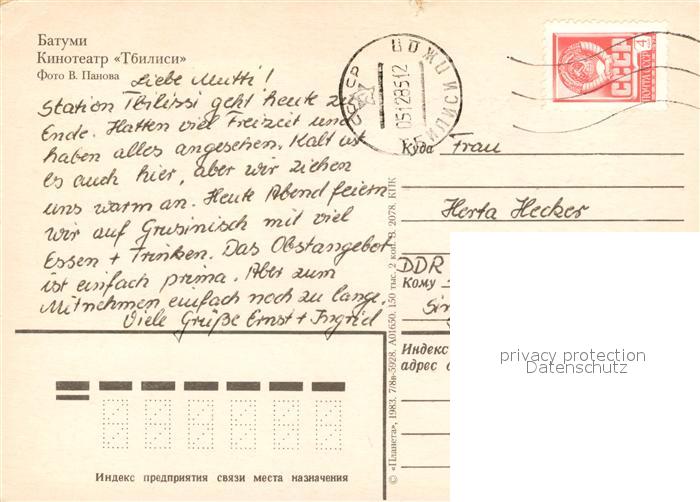 Батуми
Кинотеатр «Тбилиси»
Фото В. Панова
Liebe Mutti!
Station Tbilissi geht heute zu
Ende. Hatten viel Freizeit und
haben alles angesehen. Kalt ist
es auch hier, aber wir ziehen
uns warm an. Heute Abend feiern
wir auf Grusinisch mit viel
Essen + Trinken. Das Obstangebot
ist einfach prima. Aber zum
Mitnehmen einfach noch zu lange.
Viele Grüße Ernst + Ingrid
СССР
05128512
4
СССР
ПОЧТА СССР
Куда Frau
Herta Hecker
DDR
Кому
Индекс
адрес
privacy protection
Datenschutz
© «Планета», 1983. 7/8в-5928. А01650. 150 тыс. 2 коп. З. 2078. КПК
Индекс предприятия связи места назначения